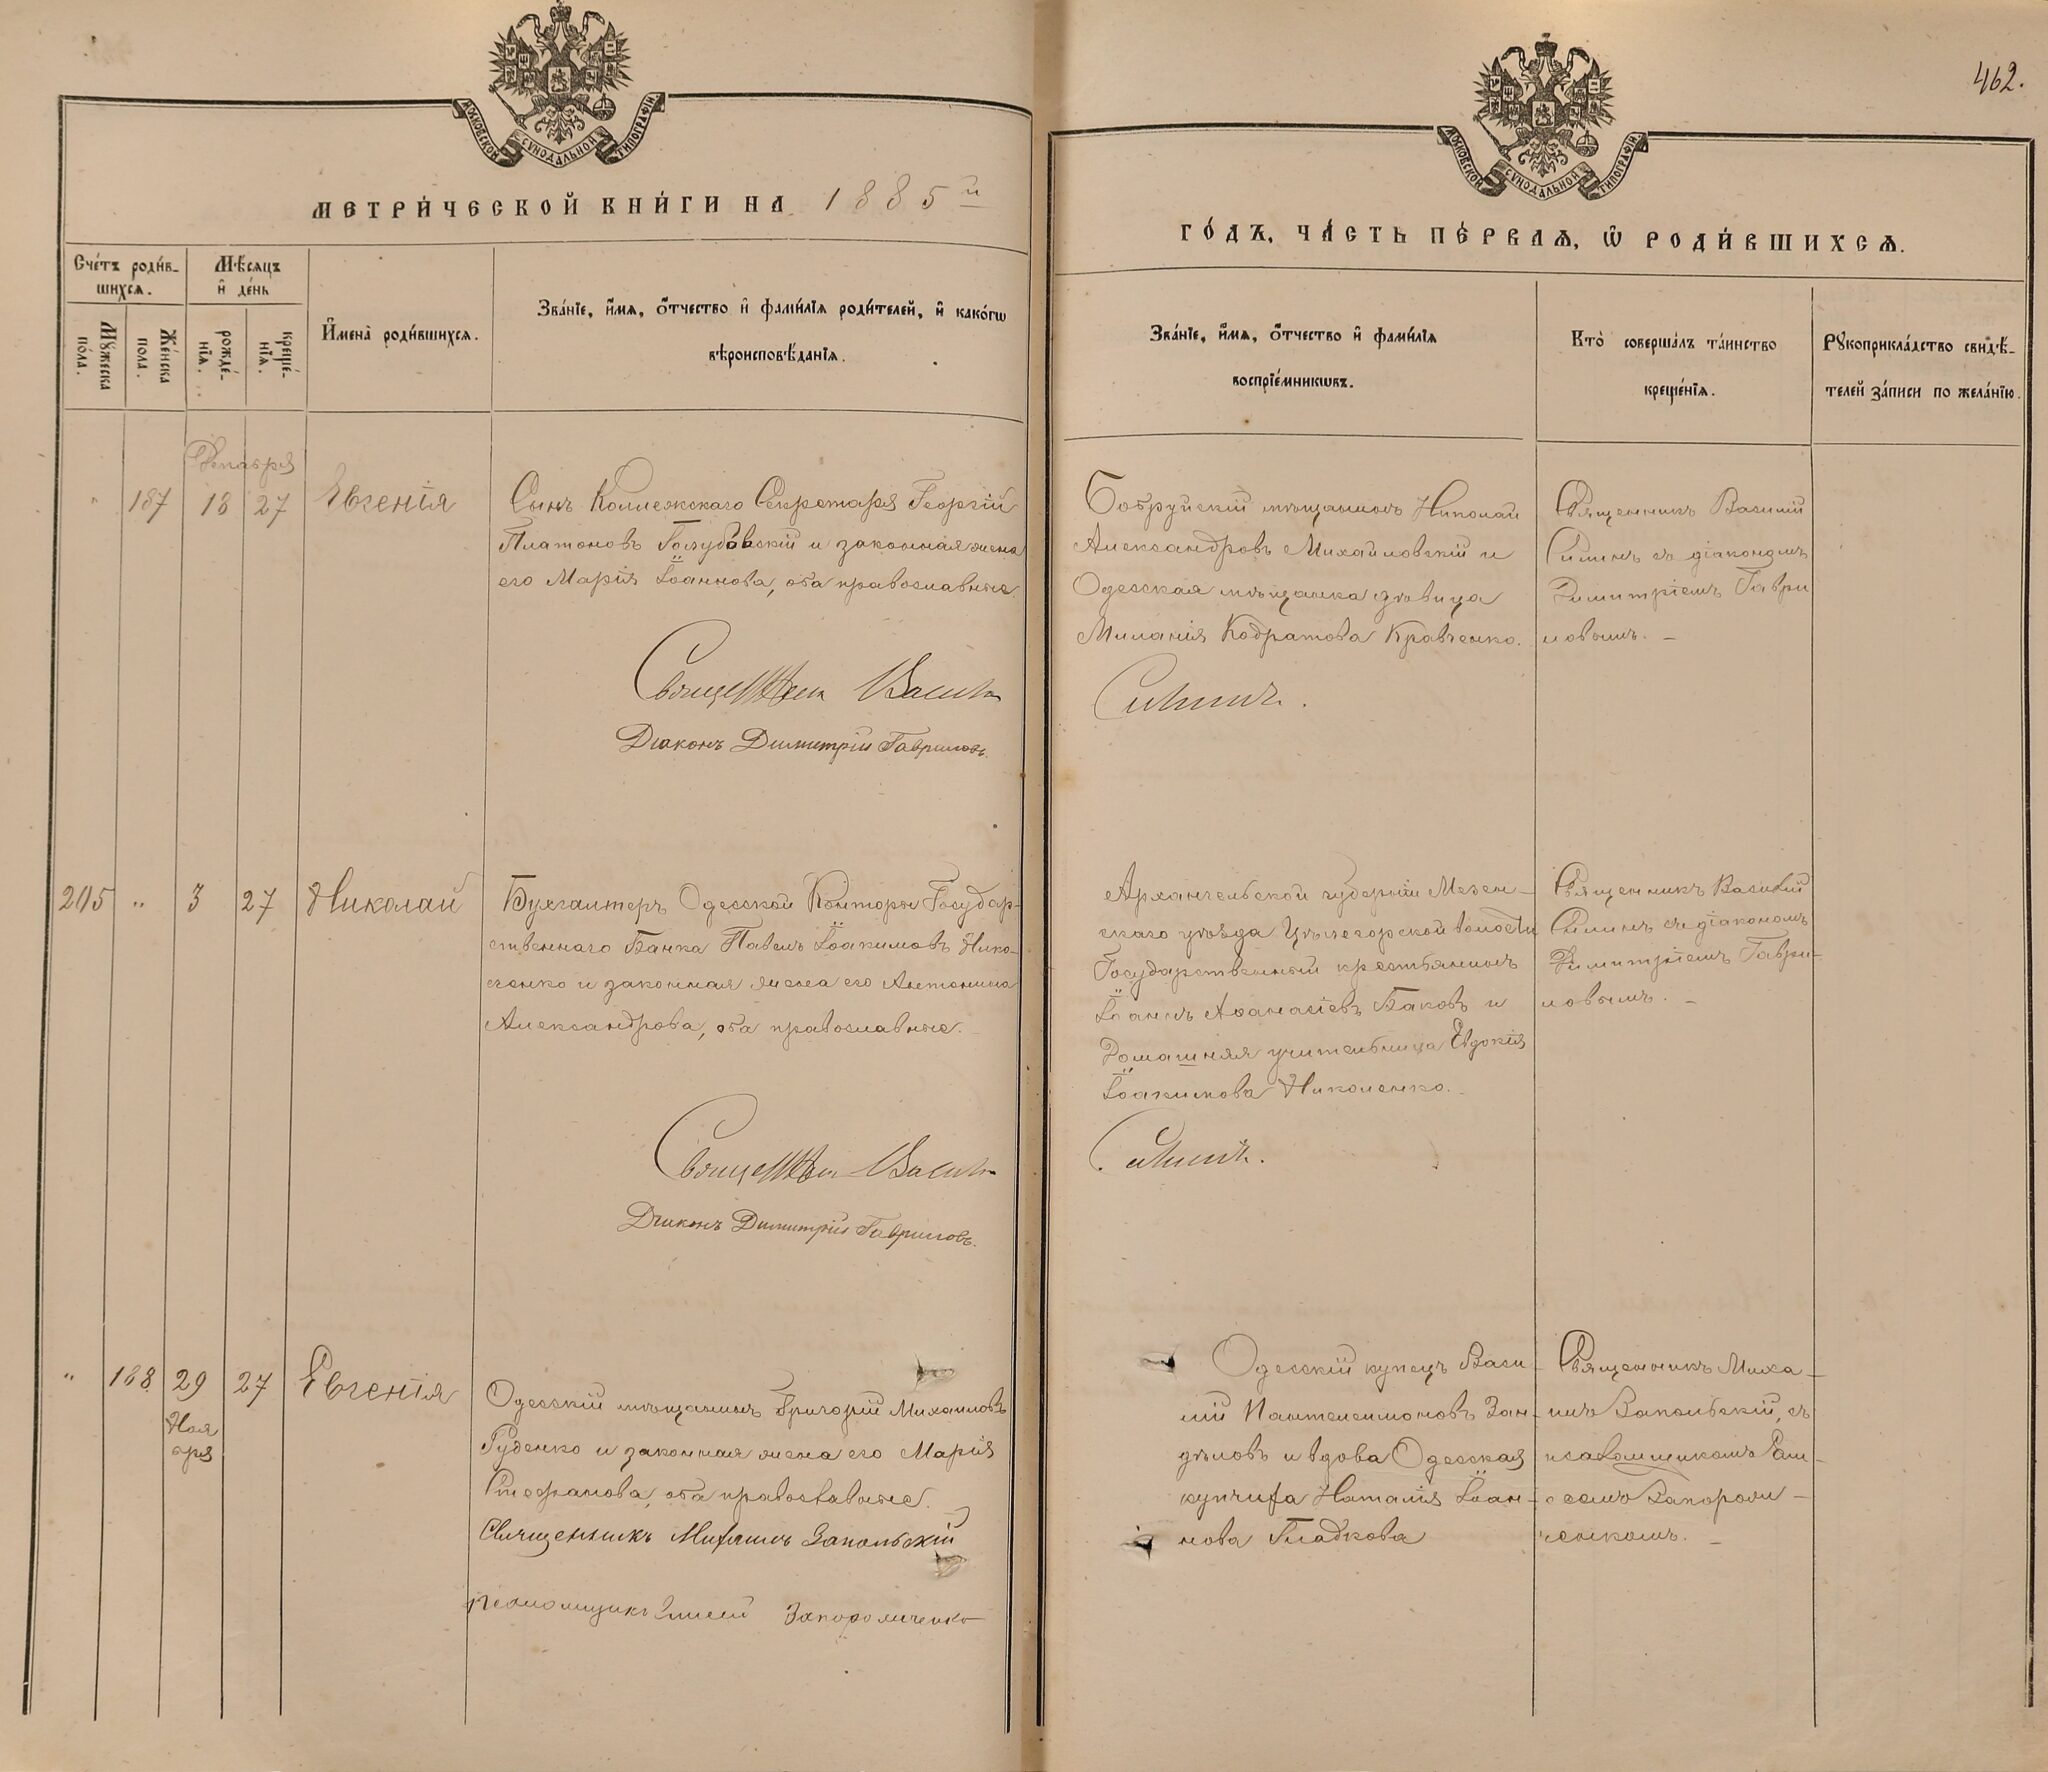 462.
МОСКОВСКОЙ СѴНОДАЛЬНОЙ ТИПОГРАФІИ.
МОСКОВСКОЙ СѴНОДАЛЬНОЙ ТИПОГРАФІИ.
МЕТРИ́ЧЕСКОЙ КНИ́ГИ НА 1885й
ГО́ДЪ, ЧА́СТЬ ПЕ́РВАѦ, Ѡ҆ РОДИ́ВШИХСѦ.
Сче́тъ роди́в-
шихсѧ.
Мꙋ́жеска
по́ла.
Же́нска
по́ла.
Мѣ́сѧцъ
и҆ де́нь
рожде́-
нїѧ.
креще́-
нїѧ.
И҆мена̀ роди́вшихсѧ.
Зва́нїе, и҆́мѧ, ѻ҆́тчество и҆ фами́лїѧ роди́телей, и҆ како́гѡ
вѣроисповѣ́данїѧ.
Зва́нїе, и҆́мѧ, ѻ҆́тчество и҆ фами́лїѧ
воспрїе́мникѡвъ.
Кто̀ соверша́лъ та́инство
креще́нїѧ.
Рꙋкоприкла́дство свидѣ́-
телей за́писи по жела́нїю.
Декабря
" 187 18 27 Евгенія
Сынъ Коллежскаго Секретаря Георгій
Платоновъ Голубовскій и законная жена
его Марія Іоаннова, оба православные.
Священникъ Василій
Діаконъ Димитрій Гавриловъ.
Бобруйскій мѣщанинъ Николай
Александровъ Михайловскій и
Одесская мѣщанка дѣвица
Миланія Кодратова Кравченко.
Силинъ.
Священникъ Василій
Силинъ съ діакономъ
Димитріемъ Гаври
ловымъ. –
205 " 3 27 Николай
Бухгалтеръ Одесской Конторы Государ-
ственнаго Банка Павелъ Іоакимовъ Нико-
ленко и законная жена его Антонина
Александрова, оба православные.
Священникъ Василій
Діаконъ Димитрій Гавриловъ.
Архангельской губерніи Мезен-
скаго уѣзда Цѣлегорской волости
Государственный крестьянинъ
Іоаннъ Аѳанасіевъ Баковъ и
Домашняя учительница Евдокія
Іоакимова Николенко.
Силинъ.
Священникъ Василій
Силинъ съ діакономъ
Димитріемъ Гаври-
ловымъ. –
" 188 29 27 Евгенія
Ноя
бря
Одесскій мѣщанинъ Григорій Михаиловъ
Руденко и законная жена его Марія
Стефанова, оба православные.
Священникъ Михаилъ Запольскій
псаломщикъ Елисей Запороженко
Одесскій купецъ Васи-
лій Пантелеимоновъ Зан-
дѣловъ и вдова Одесская
купчиха Наталія Іоан-
нова Гладкова
Священникъ Миха-
илъ Запольскій, съ
псаломщикомъ Ели-
сеемъ
ченкомъ. –